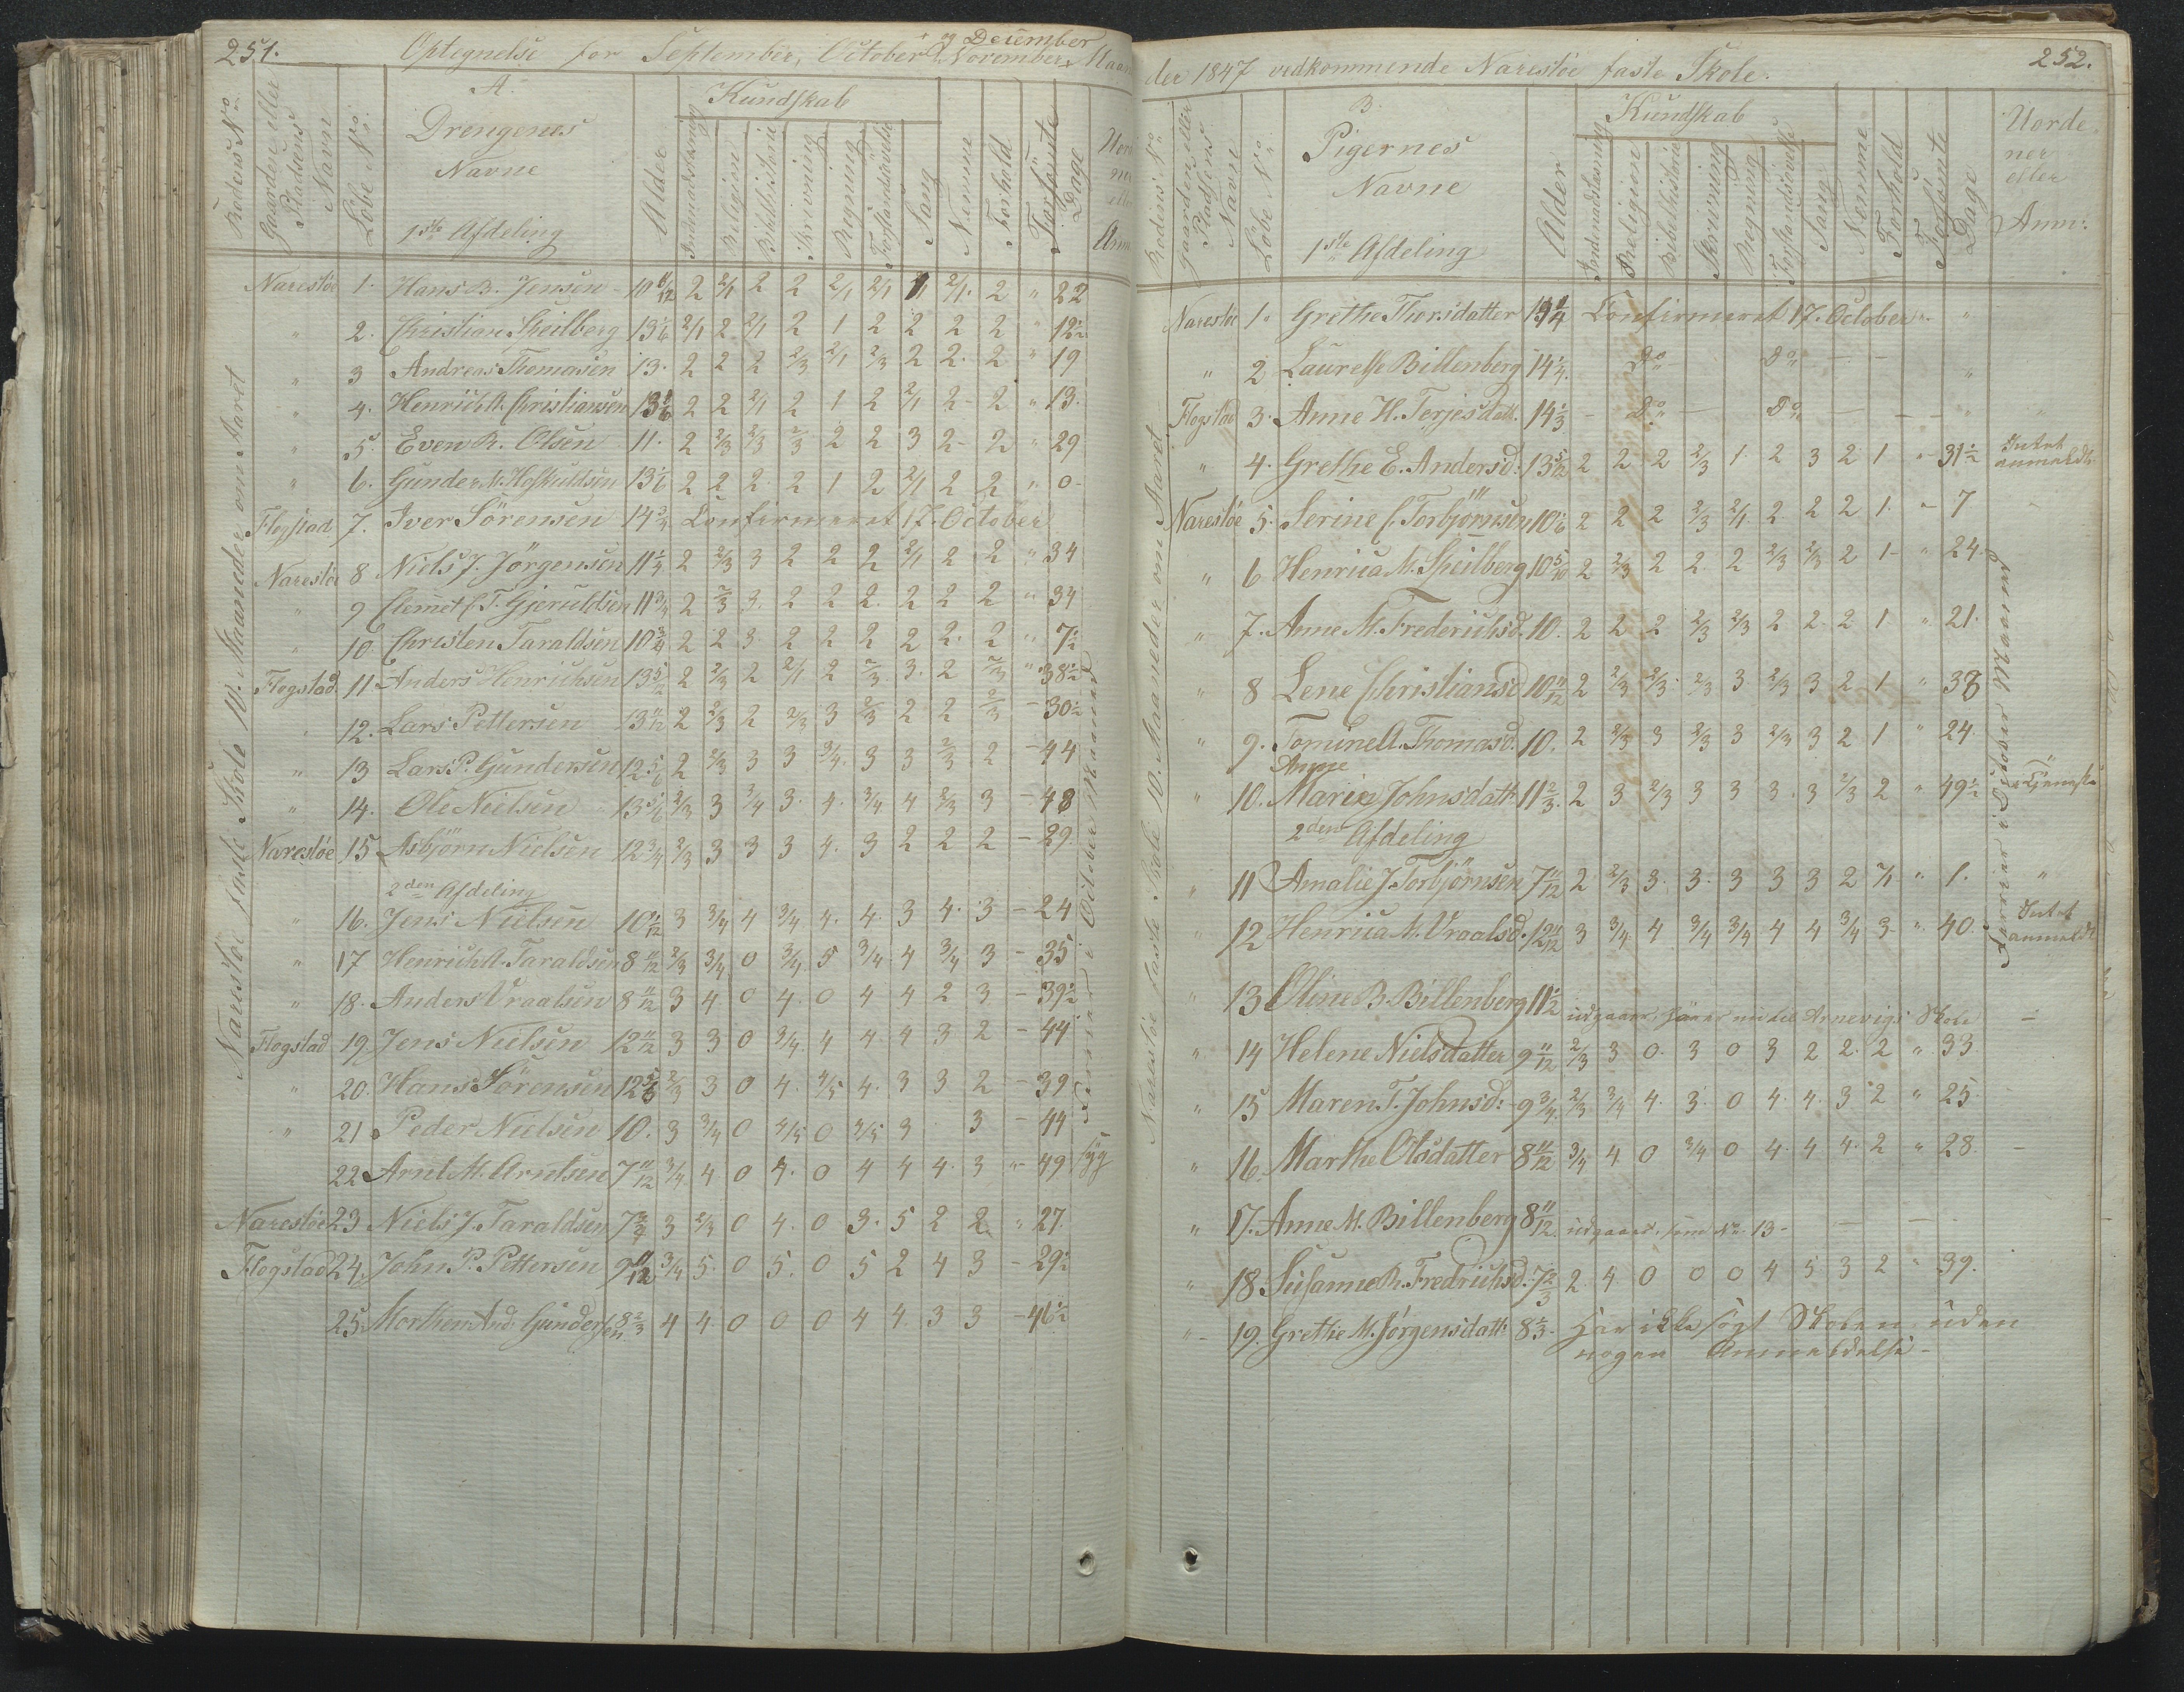 251.
Optegnelse for September, October, November og December Maane
A.
Drengenes
Navne
1ste Afdeling
Rodens No
Gaardens eller Pladsens Navn
Löbe No
Alder
Kundskab
Indenadslæsning
Religion
Bibelhistorie
Skrivning
Regning
Forstandsövelse
Sang
Nemme
Forhold
Forsömte Dage
Narestöe faste Skole 10. Maaneder om Aaret
Narestöe 1. Hans B. Jensen 10 11/12 2 2/1 2 2 2/1 2/1 1 2/1. 2 " 22
" 2. Christian Speilberg 13 1/6 2/1 2 2/1 2 1 2 2 2 2 " 12 1/2
" 3 Andreas Thomasen 13. 2 2 2 2/3 2/1 2/3 2 2. 2 " 19
" 4. Henrich A. Christiansen 13 1/6 2 2 2/1 2 1 2 2/1 2 2 " 13.
" 5. Even R. Olsen 11. 2 2/3 2/3 2/3 2 2 3 2 2 " 29
" 6. Gunder N. Hofkuldsen 13 1/6 2 2 2 2 1 2 2/1 2 2 " 0
Flogstad 7. Iver Sörensen 14 3/4 Confirmeret 17. October
Narestöe 8 Niels J. Jörgensen 11 1/4 2 2/3 3 2 2 2 2/1 2 2 " 34
" 9 Clemet C. T. Gjeruldsen 11 3/4 2 2/3 3. 2 2 2. 2 2 2 " 34
" 10 Christen Taraldsen 10 3/4 2 2 3. 2 2 2 2 2. 2 " 7 1/2
Flogstad. 11 Anders Henrichsen 13 5/12 2 2/3 2 2/1 2 2/3 3. 2 2/3 " 38 1/2
" 12. Lars Pettersen 13 11/12 2 2/3 2 2/3 3 2/3 2 2 2/3 - 30 1/2
" 13 Lars P. Gundersen 12 5/6 2 2/3 3 3 3/4. 3 3 2/3 2 - 44
" 14. Ole Nielsen 13 5/6 2/3 3 3/4 3. 4. 3/4 4 2/3 3 - 48
Narestöe 15 Asbjörn Nielsen 12 3/4 2/3 3 3 3 4. 3 2 2 2 - 29.
2den Afdeling
" 16. Jens Nielsen 10 11/12 3 3/4 4 3/4 4. 4. 3 4. 3 - 24
" 17 Henrich A. Taraldsen 8 11/12 2/3 3/4 0 3/4 5 3/4 4 3/4 3 - 35
" 18. Anders Vraalsen 8 11/12 3 4. 0 4. 0 4 4 2 3 - 39 1/2
Flogstad 19. Jens Nielsen 12 11/12 3 3 0 3/4. 4 4. 4 3 2 - 44
" 20. Hans Sörensen 12 5/6 2/3 3 0 4. 4/5 4. 3 3 2 - 39
" 21 Peder Nielsen 10. 3 3/4 0 4/5 0 4/5 3 3 - 44
22 Arnt M. Arntsen 7 11/12 3/4 4. 0 4. 0 4 4 4. 3 " 49 syg
Narestöe 23 Niels J. Taraldsen 7 3/4 3 2/3 0 4. 0 3. 5 2 2 " 27.
Flogstad 24. John P. Pettersen 9 11/12 3/4 5. 0 5. 0 5 2 4 3 - 29 1/2
25. Morthen And. Gundersen 8 2/3 4 4. 0 0 0 4 4. 3 3 - 46 1/2
252.
der 1847 vedkommende Narestöe faste Skole.
B.
Pigernes
Navne
1ste Afdeling
Rodens No
Gaardens eller Pladsens Navn
Löbe No
Alder
Kundskab
Indenadslæsning
Religion
Bibelhistorie
Skrivning
Regning
Forstandsövelse
Sang
Nemme
Forhold
Forsömte Dage
Uorde
ner
eller
Anm:
Narestöe faste Skole 10. Maaneder om Aaret
Narestöe 1. Grethe Thorsdatter 14 1/4 Confirmeret 17. October "
" 2 Laurelse Billenberg 14 1/4. Do Do "
Flogstad 3. Anne H. Terjesdatt. 14 1/3 Do Do "
" 4. Grethe E. Andersd: 13 5/12 2 2 2 2/3 1. 2 3 2 1 - 31 1/2 Intet anmeldt
Narestöe 5. Serine C. Torbjörnsen 10 1/6 2 2 2 2/3 2/1 2 2 2 1. - 7
" 6 Henrica M. Speilberg 10 5/12 2 2/3 2 2. 2 2/3 2/3 2 1 " 24.
" 7. Anne M. Frederichsd. 10. 2 2 2 2/3 2/3 2 2. 2 1 " 21.
" 8 Lene Christiansd 10 11/12 2 2/3 2/3 2/3 3 2/3 3 2 1 " 38
" 9. Tomine A. Thomasd. 10. 2 2/3 3 2/3 3 2/3 3 2 1 " 24.
" 10. Anne Maria Johnsdatt. 11 2/3. 2 3 2/3 3 3 3. 3 2/3 2 " 49 1/2
2den Afdeling
" 11 Amalie J. Torbjörnsen 7 11/12 2 2/3 3. 3. 3 3 3 2 2/1 " 1. "
" 12 Henrica M. Vraalsd. 12 11/12 3 3/4 4 3/4 3/4 4 4 3/4 3 " 40. Intet anmeldt
" 13 Oline B. Billenberg 11 1/2 udgaaer, gaaer nu til Arnevigs Skole
" 14 Helene Nielsdatter 9 11/12 2/3 3 0. 3 0 3 2 2. 2 " 33.
" 15 Maren T. Johnsd: 9 3/4 2/3 3/4 4. 3. 0 4. 4. 3 2 " 25.
" 16. Marthe Olsdatter 8 11/12 3/4 4 0 3/4 0 4. 4 4. 2 " 28.
" 17. Anne M. Billenberg 8 11/12. udgaaer, som No 13
" 18. Susanne R. Fredrichsd. 7 2/3 2. 4. 0 0 0 4 5 3 2 " 39.
" 19. Grethe M. Jörgensdatt. 8 1/3. Har ikke sögt Skolen uden
nogen Anmeldelse